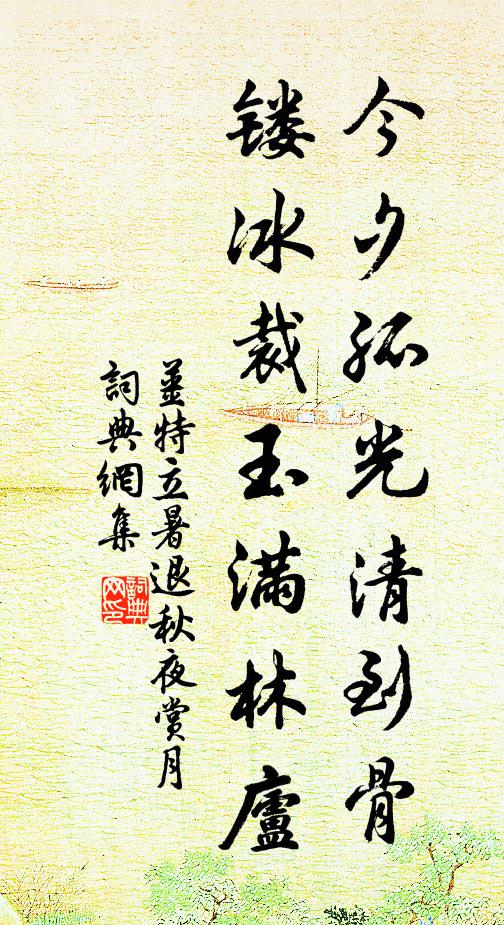 今夕孤光清到骨
镂冰裁玉满林廬
薑特立暑退秋夜赏月
詞典網集
詞典
网印